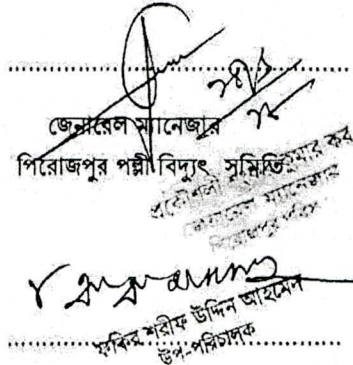 জেনারেল ম্যানেজার
পিরোজপুর পল্লী বিদ্যুৎ সমিতি
প্রকৌশলী কুমার কর
জেনারেল ম্যানেজার
ফকির শরীফ উদ্দিন আহমেদ
উপ-পরিচালক